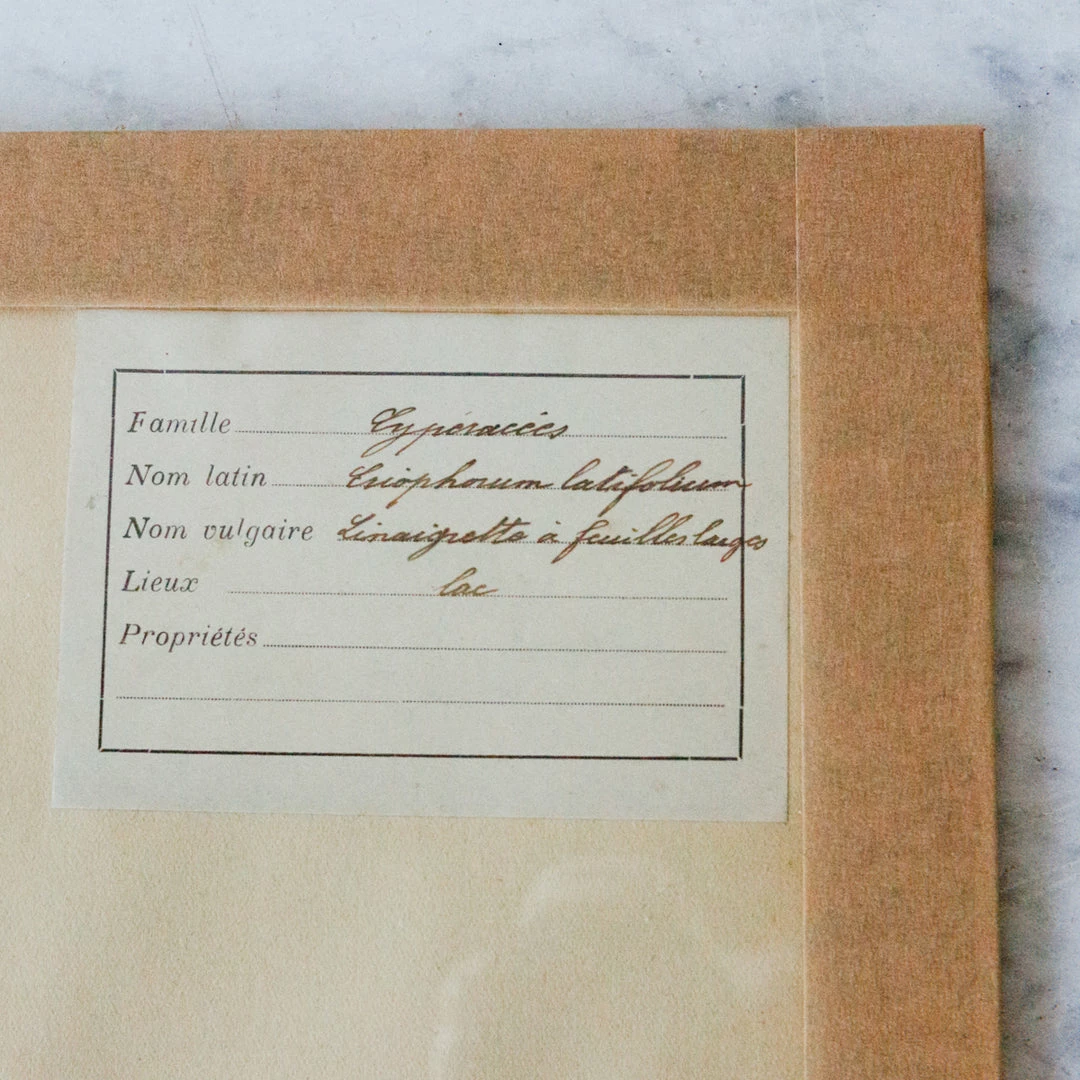 Famille Cypéracées
Nom latin Eriophorum latifolium
Nom vulgaire Linaigrette à feuilles larges
Lieux lac
Propriétés